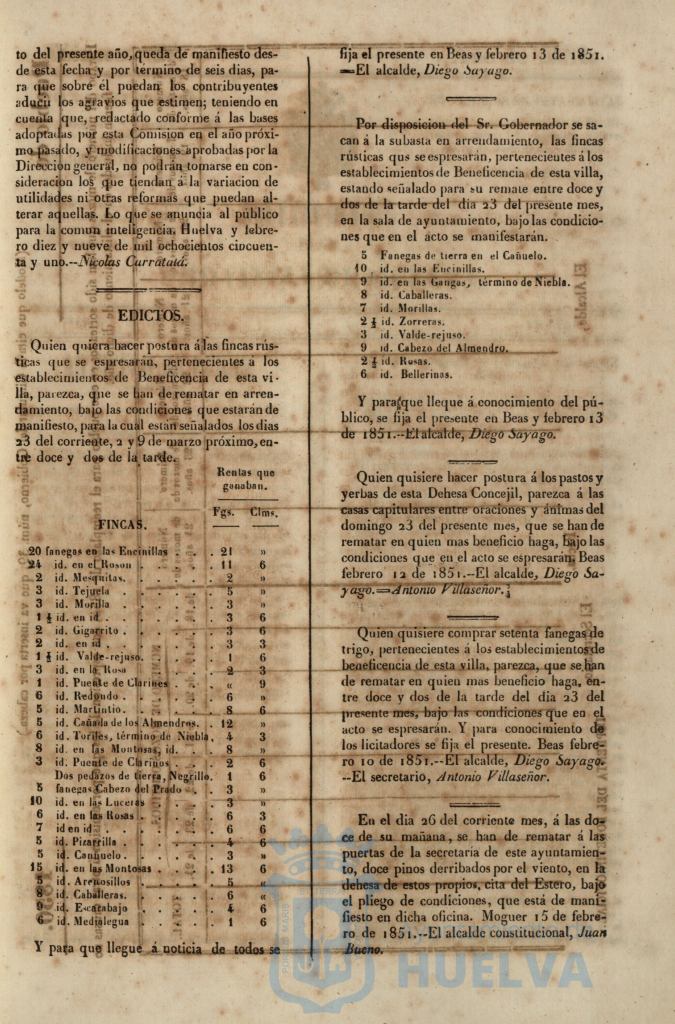 to del presente año, queda de manifiesto des-
de esta fecha y por término de seis dias, pa-
ra que sobre él puedan los contribuyentes
aducir los agravios que estimen; teniendo en
cuenta que, redactado conforme á las bases
adoptadas por esta Comision en el año próxi-
mo pasado, y modificaciones aprobadas por la
Direccion general, no podrán tomarse en con-
sideracion los que tiendan á la variacion de
utilidades ni otras reformas que puedan al-
terar aquellas. Lo que se anuncia al público
para la comun inteligencia. Huelva y febre-
ro diez y nueve de mil ochocientos cincuen-
ta y uno.--Nicolas Carratalá.
EDICTOS.
Quien quiera hacer postura á las fincas rús-
ticas que se espresarán, pertenecientes á los
establecimientos de Beneficencia de esta vi-
lla, parezca, que se han de rematar en arren-
damiento, bajo las condiciones que estarán de
manifiesto, para la cual están señalados los dias
23 del corriente, 2 y 9 de marzo próximo, en-
tre doce y dos de la tarde.
Rentas que
ganaban.
FINCAS. Fgs. Clms.
20 fanegas en las Encinillas . . . 21 »
24 id. en el Roson . . . . . . 11 6
2 id. Mesquitas. . . . . . . 2 »
3 id. Tejuela . . . . . . . 5 »
3 id. Morilla . . . . . . . 3 »
1 ½ id. en id . . . . . . . . 3 6
2 id. Gigarrito . . . . . . . 3 6
2 id. en id . . . . . . . . 3 3
1 ½ id. Valde-rejuso. . . . . . 1 6
3 id. en la Rosa . . . . . . 2 3
1 id. Puente de Clarines . . . « 9
6 id. Redondo . . . . . . . 6 »
5 id. Martintio. . . . . . . 8 6
5 id. Cañada de los Almendros. . 12 »
6 id. Toriles, término de Niebla. . 4 3
8 id. en las Montosas, id. . . . 8 »
3 id. Puente de Clarinos . . . 2 6
Dos pedazos de tierra, Negrillo. 1 6
5 fanegas Cabezo del Prado . . . 3 »
10 id. en las Luceras . . . . . 3 »
6 id. en las Rosas . . . . . . 6 3
7 id en id . . . . . . . . 6 6
5 id. Pizarrilla . . . . . . 4 6
5 id. Cañuelo . . . . . . . 3 »
15 id. en las Montosas . . . . . 13 6
5 id. Arenosillos . . . . . . 5 «
8 id. Caballeras. . . . . . . 6 «
9 id. Escarabajo . . . . . . 4 6
6 id. Medialegua . . . . . . 1 6
Y para que llegue á noticia de todos se
fija el presente en Beas y febrero 13 de 1851.
=El alcalde, Diego Sayago.
Por disposicion del Sr. Gobernador se sa-
can á la subasta en arrendamiento, las fincas
rústicas qus se espresarán, pertenecientes á los
establecimientos de Beneficencia de esta villa,
estando señalado para su remate entre doce y
dos de la tarde del dia 23 del presente mes,
en la sala de ayuntamiento, bajo las condicio-
nes que en el acto se manifestarán.
5 Fanegas de tierra en el Cañuelo.
10 id. en las Encinillas.
9 id. en las Gangas, término de Niebla.
8 id. Caballeras.
7 id. Morillas.
2 ½ id. Zorreras.
3 id. Valde-rejuso.
9 id. Cabezo del Almendro.
2 ½ id. Rosas.
6 id. Bellerinas.
Y para que lleque á conocimiento del pú-
blico, se fija el presente en Beas y febrero 13
de 1851.--El alcalde, Diego Sayago.
Quien quisiere hacer postura á los pastos y
yerbas de esta Dehesa Concejil, parezca á las
casas capitulares entre oraciones y ánimas del
domingo 23 del presente mes, que se han de
rematar en quien mas beneficio haga, bajo las
condiciones que en el acto se espresarán. Beas
febrero 12 de 1851.--El alcalde, Diego Sa-
yago.=Antonio Villaseñor.
Quien quisiere comprar setenta fanegas de
trigo, pertenecientes á los establecimientos de
beneficencia de esta villa, parezca, que se han
de rematar en quien mas beneficio haga, en-
tre doce y dos de la tarde del dia 23 del
presente mes, bajo las condiciones que en el
acto se espresarán. Y para conocimiento de
los licitadores se fija el presente. Beas febre-
ro 10 de 1851.--El alcalde, Diego Sayago.
--El secretario, Antonio Villaseñor.
En el dia 26 del corriente mes, á las do-
ce de su mañana, se han de rematar á las
puertas de la secretaria de este ayuntamien-
to, doce pinos derribados por el viento, en la
dehesa de estos propios, cita del Estero, bajo
el pliego de condiciones, que está de mani-
fiesto en dicha oficina. Moguer 15 de febre-
ro de 1851.--El alcalde constitucional, Juan
Bueno.
HUELVA